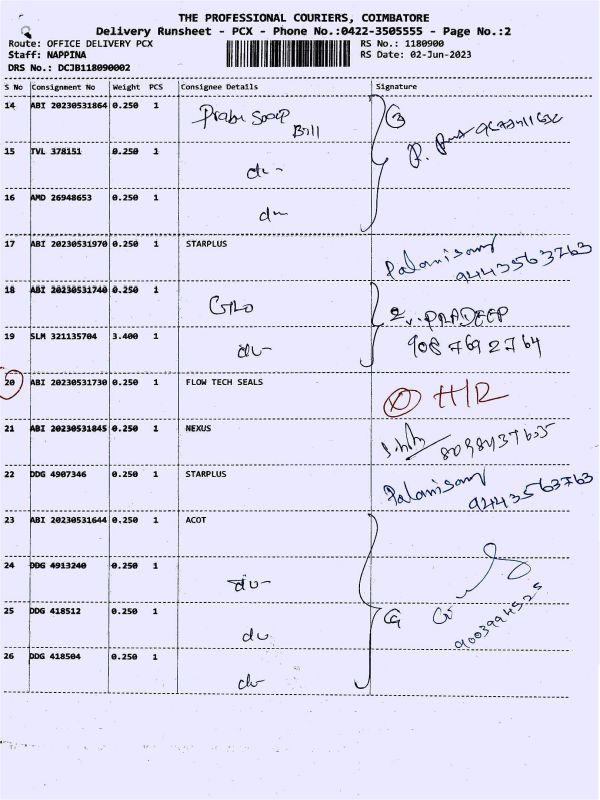 THE PROFESSIONAL COURIERS, COIMBATORE
Delivery Runsheet - PCX - Phone No.:0422-3505555 - Page No.:2
Route: OFFICE DELIVERY PCX RS No.: 1180900
Staff: NAPPINA RS Date: 02-Jun-2023
DRS No.: DCJB118090002
S No Consignment No Weight PCS Consignee Details Signature
14 ABI 20230531864 0.250 1 Prabu Soap Bill 3
15 TVL 378151 0.250 1 du-
16 AMD 26948653 0.250 1 du
17 ABI 20230531970 0.250 1 STARPLUS Palanisamy 9443563763
18 ABI 20230531740 0.250 1 2 V. PRADEEP
19 SLM 321135704 3.400 1 du- 9087692764
20 ABI 20230531730 0.250 1 FLOW TECH SEALS H/R
21 ABI 20230531845 0.250 1 NEXUS
22 DDG 4907346 0.250 1 STARPLUS Palanisamy 9443563763
23 ABI 20230531644 0.250 1 ACOT
24 DDG 4913240 0.250 1 du-
25 DDG 418512 0.250 1 du
26 DDG 418504 0.250 1 du